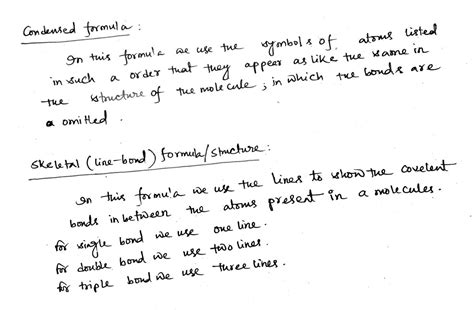 Condensed formula :
In this formula we use the symbols of atoms listed
in such a order that they appear as like the same in
the structure of the molecule, in which the bonds are
omitted .
Skeletal (line-bond) formula/structure :
In this formula we use the lines to show the covelent
bonds in between the atoms present in a molecules.
for single bond we use one line.
for double bond we use two lines.
for triple bond we use three lines.